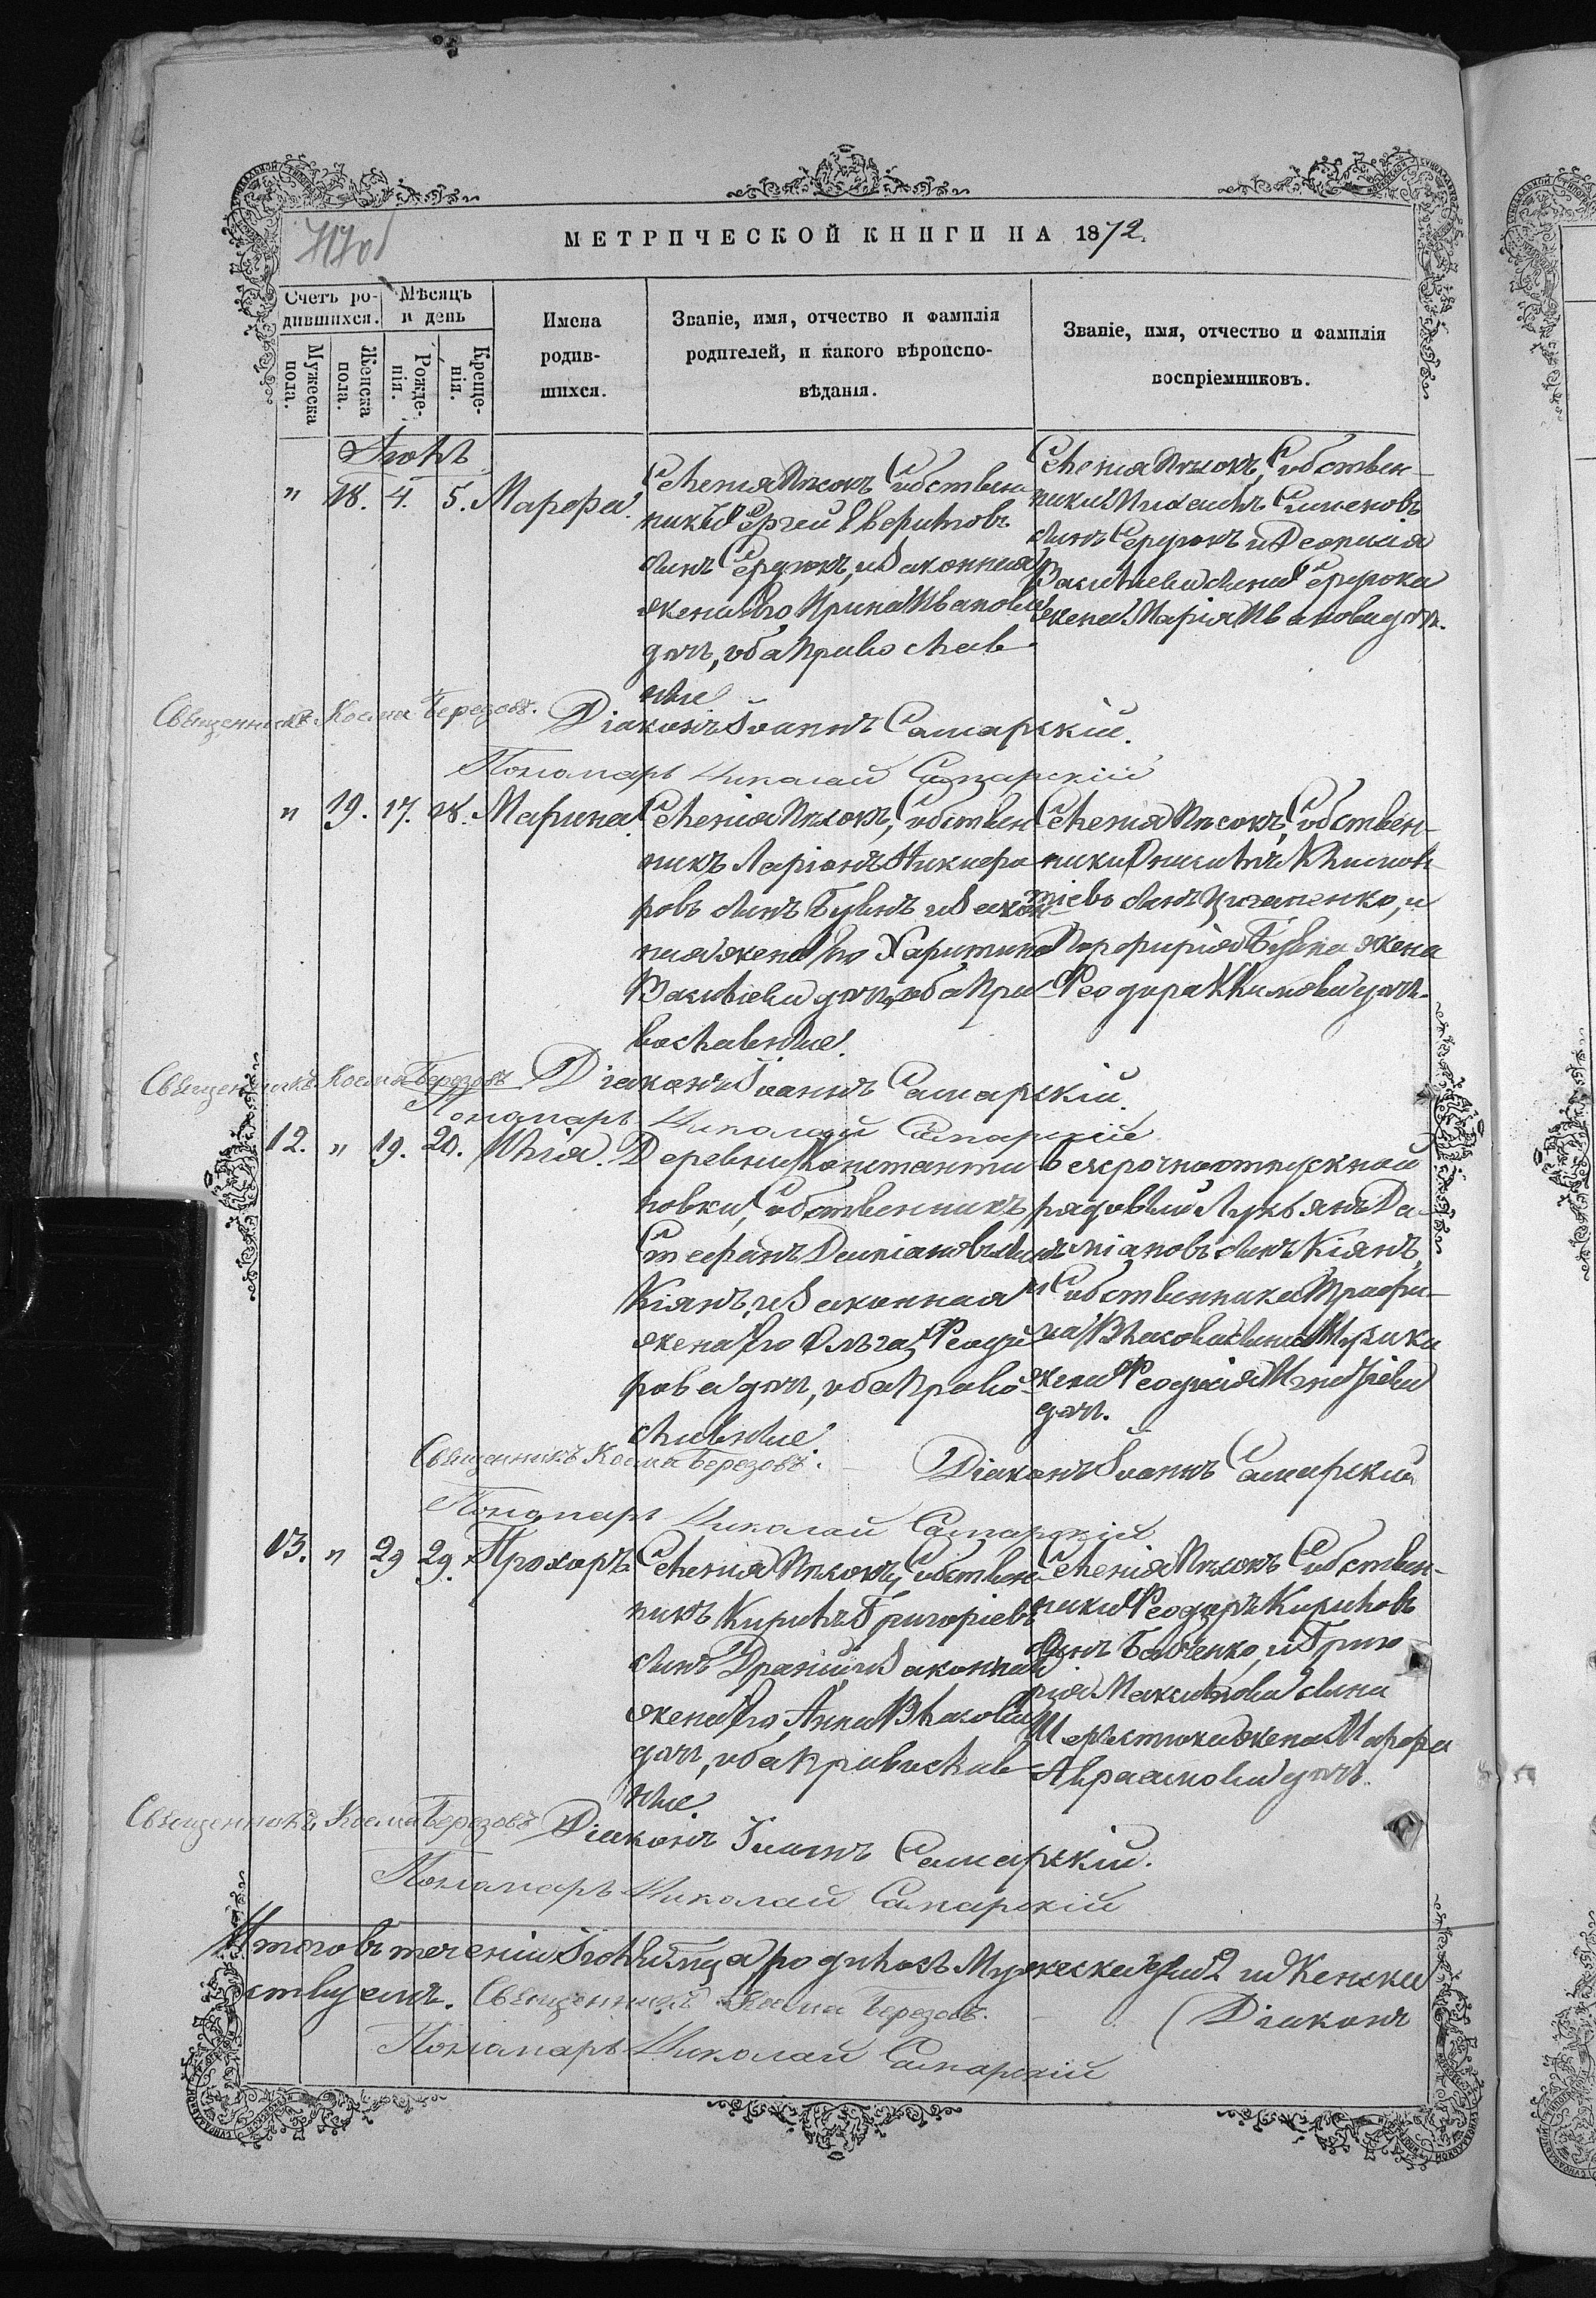 717об
МЕТРИЧЕСКОЙ КНИГИ НА 1872.
Счетъ ро-
дившихся.
Мѣсяцъ
и день
Мужеска
пола.
Женска
пола.
Рожде-
нія.
Креще-
нія.
Имена
родив-
шихся.
Званіе, имя, отчество и фамилія
родителей, и какого вѣроиспо-
вѣданія.
Званіе, имя, отчество и фамилія
воспріемниковъ.
Іюль
" 18. 4. 5. Марфа.
Селенія Пѣсокъ Собствен
никъ Сергій
сынъ Сердюкъ, и Законная
жена его Ирина Иванова
дочь, оба Православ
ные
Селенія Пѣсокъ, Собствен-
ники Симеоновъ
сынъ Сердюкъ и
Васильева сына Сердюка
жена Марія Иванова дочь.
Священникъ Косма Березовъ. Діаконъ Іоаннъ Самарскій.
Пономарь Николай Самарскій
" 19. 17. 18. Марина.
Селенія Пѣсокъ, Собствен
никъ Ларіонъ Никифо
ровъ сынъ и Закон
ная жена его Харитина
Васильева дочь, оба Пра
вославные.
Селенія Пѣсокъ, Собствен-
ники
тіевъ сынъ Цыганенко, и
Порфирія жена
Феодора Климова дочь.
Священникъ Косма Березовъ Діаконъ Іоаннъ Самарскій.
Пономарь Николай Самарскій
12. " 19. 20. Илія.
Деревни Константи
новки, Собственникъ
Стефанъ Даміановъ сынъ
Кіянъ, и Законная
жена его Ольга Феодо
рова дочь, оба Право
славные.
Безсрочноотпускной
рядовый Лукьянъ Да
міановъ сынъ Кіянъ,
и Собственника Трофи-
ма Власова сына
жена Феодосія
дочь.
Священникъ Косма Березовъ. Діаконъ Іоаннъ Самарскій
Пономарь Николай Самарскій
13. " 29 29. Прохоръ.
Селенія Пѣсокъ, Собствен
никъ Кирилъ Григоріевъ
сынъ и Законная
жена его, Анна Власова
дочь, оба Православ
ные.
Селенія Пѣсокъ Собствен-
ники Феодоръ Кириловъ
сынъ Бабченко, и Григо
рія Максимова сына
жена Марфа
Авраамова дочь.
Священникъ Косма Березовъ Діаконъ Іоаннъ Самарскій.
Пономарь Николай Самарскій
Итого въ теченіи Іюля мѣсяца родилось Мужеска 2 и Женска
Священникъ Косма Березовъ. Діаконъ
Пономарь Николай Самарскій